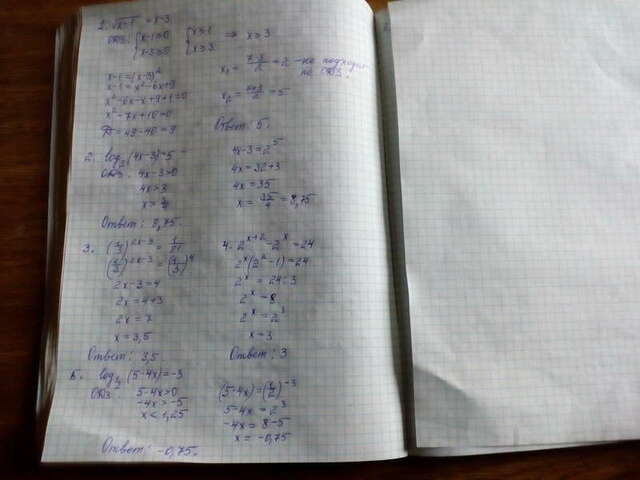 1. √x-1 = x-3
ОДЗ: {x-1≥0 {x≥1 ⇒ x≥3
{x-3≥0 {x≥3
x-1=(x-3)²
x-1=x²-6x+9
x²-6x-x+9+1=0
x²-7x+10=0
D=49-40=9
x₁ = 7-3/2 = 2 - не подходит
по ОДЗ.
x₂ = 7+3/2 = 5
Ответ: 5.
2. log₂(4x-3)=5
ОДЗ: 4x-3>0
4x>3
x>3/4
4x-3=2⁵
4x=32+3
4x=35
x=35/4=8,75
Ответ: 8,75.
3. (1/3)^2x-3 =
(1/3)^2x-3 = (1/3)⁴
2x-3=4
2x=4+3
2x=7
x=3,5
Ответ: 3,5
4. 2^x+2 - 2^x = 24
2^x(2²-1)=24
2^x = 24:3
2^x = 8
2^x = 2³
x=3
Ответ: 3
5. (5-4x)=-3
ОДЗ: 5-4x>0
-4x>-5
x<1,25
(5-4x)=(1/2)^-3
5-4x=2³
-4x=8-5
x=-0,75
Ответ: -0,75.